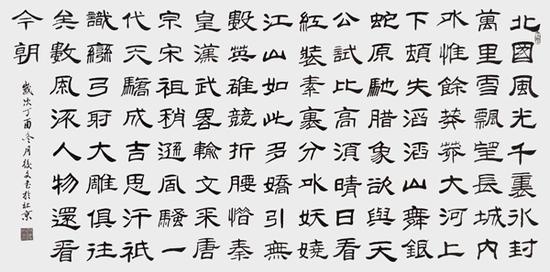 北國風光千裏冰封
萬里雪飄望長城內
外惟餘莽莽大河上
下頓失滔滔山舞銀
蛇原馳腊象欲與天
公試比高須晴日看
紅裝素裹分外妖嬈
江山如此多嬌引無
數英雄競折腰惜秦
皇漢武畧輸文采唐
宗宋祖稍遜風騷一
代天驕成吉思汗祇
識彎弓射大雕俱往
矣數風流人物還看
今朝
歲次丁酉冬月文書於北京